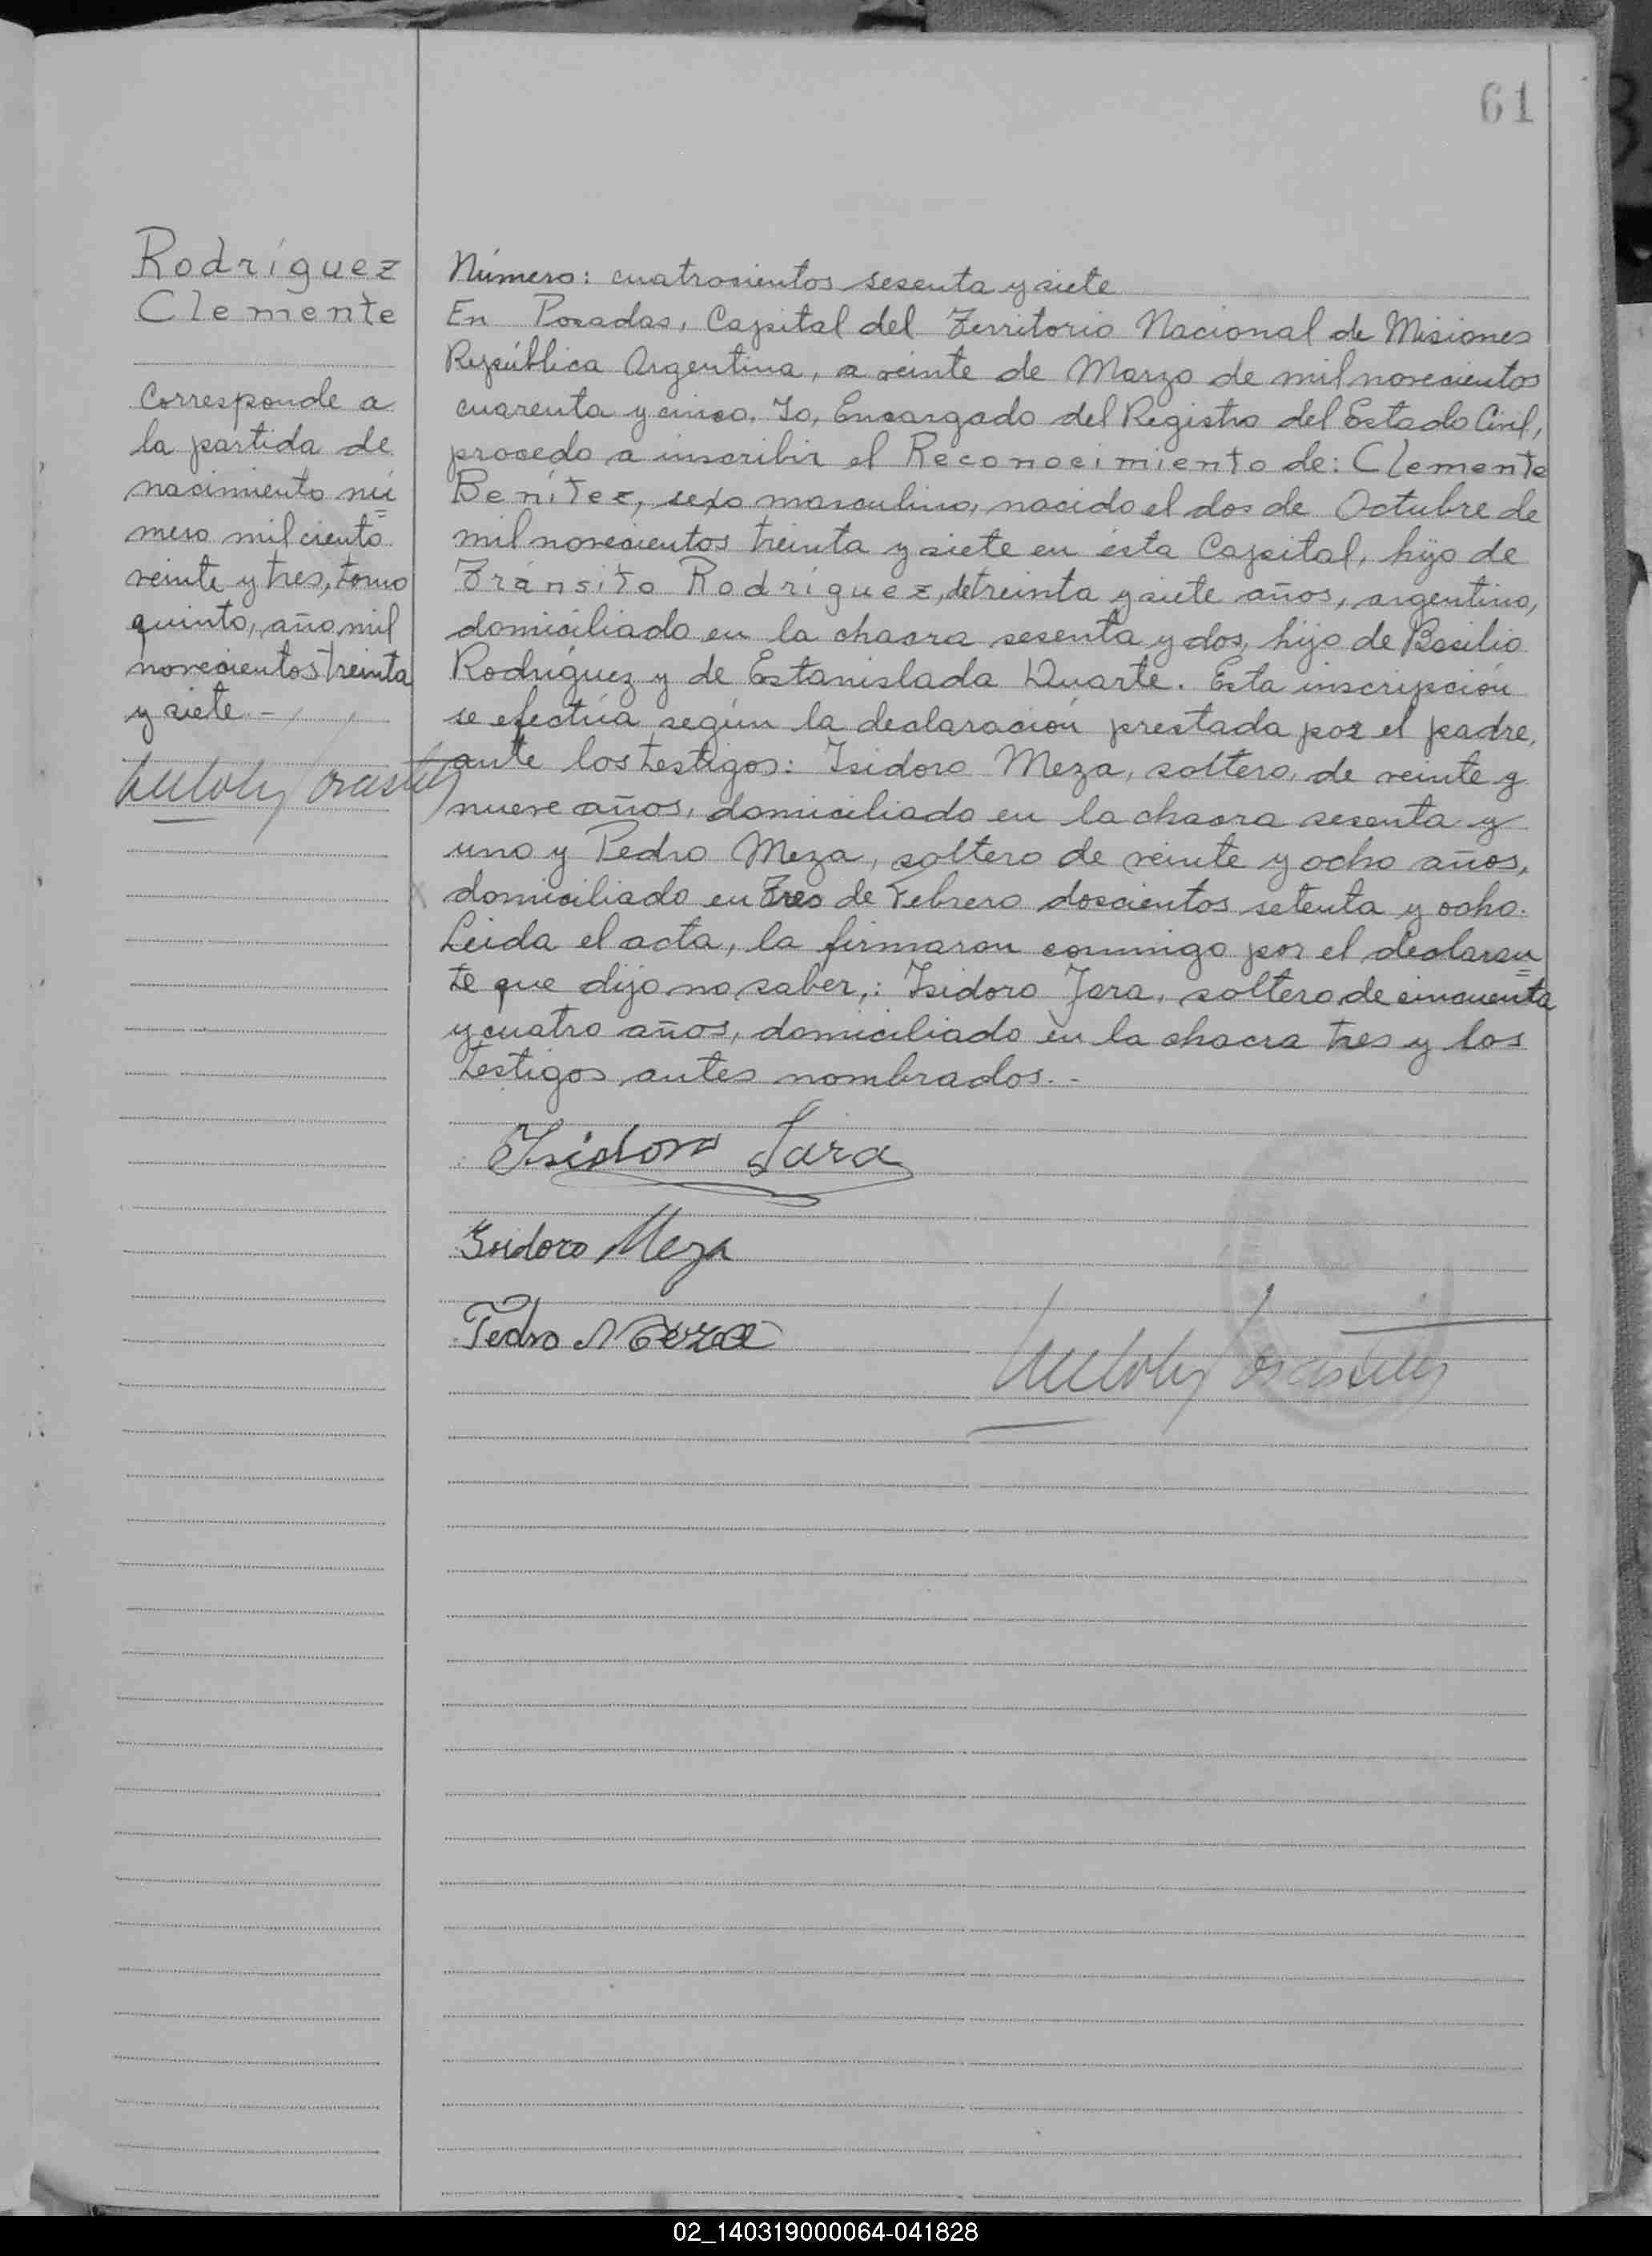 61
Rodríguez
Clemente
Corresponde a
la partida de
nacimiento nú=
mero mil ciento
veinte y tres, tomo
quinto, año mil
novecientos treinta
y siete.-
Número: cuatrocientos sesenta y siete
En Posadas, Capital del Territorio Nacional de Misiones
República Argentina, a veinte de Marzo de mil novecientos
cuarenta y cinco. Yo, Encargado del Registro del Estado Civil,
procedo a inscribir el Reconocimiento de: Clemente
Benítez, sexo masculino, nacido el dos de Octubre de
mil novecientos treinta y siete en ésta Capital, hijo de
Tránsito Rodríguez, de treinta y siete años, argentino,
domiciliado en la chacra sesenta y dos, hijo de Basilio
Rodríguez y de Estanislada Duarte. Esta inscripción
se efectúa según la declaración prestada por el padre,
ante los testigos: Isidoro Meza, soltero, de veinte y
nueve años, domiciliado en la chacra sesenta y
uno y Pedro Meza, soltero de veinte y ocho años,
domiciliado en Tres de Febrero doscientos setenta y ocho.
Leida el acta, la firmaron conmigo por el declaran=
te que dijo no saber,: Isidoro Jara, soltero de cincuenta
y cuatro años, domiciliado en la chacra tres y los
testigos antes nombrados.-
Isidoro Jara
Isidoro Meza
Pedro Meza
02_140319000064-041828